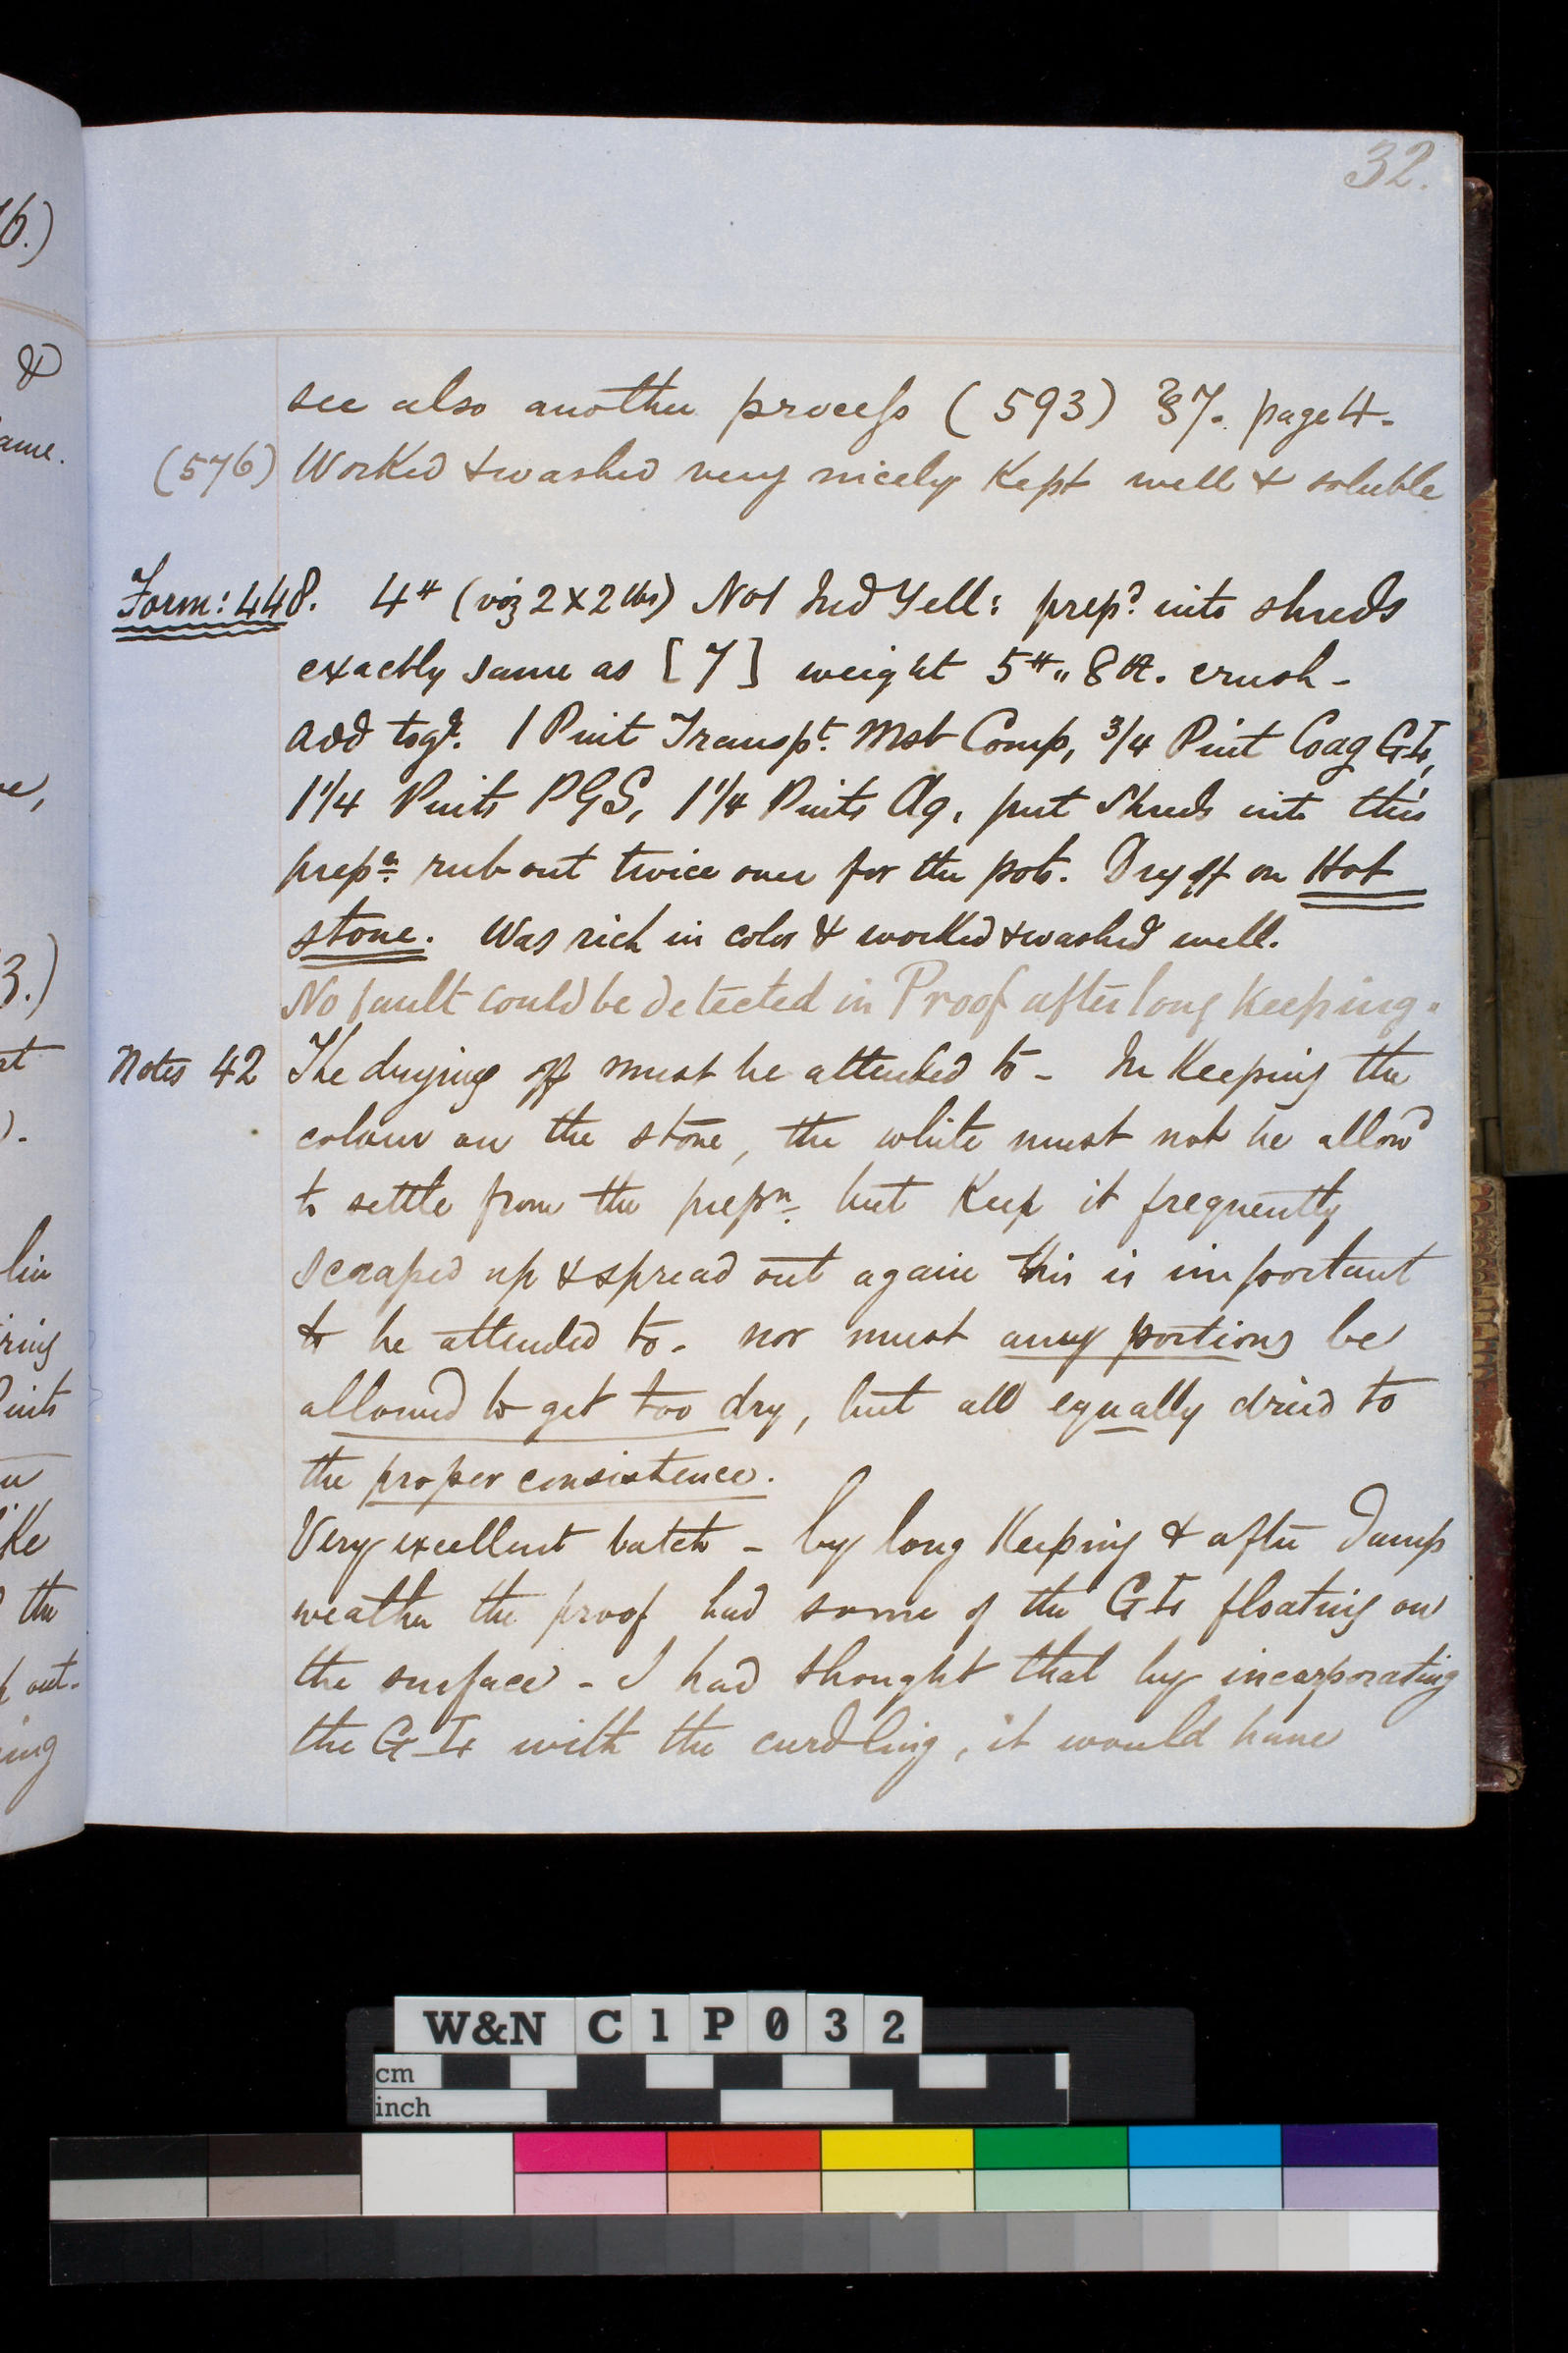 32.
see also another process (593) 37. page 4.
(576) Worked & washed very nicely Kept well & soluble
Form: 448. 4# (viz 2 x 2 lbs) No 1 Ind Yell: prepd. into shreds
exactly same as [7] weight 5#.. 8 oz. crush -
add togr. 1 Pint Transpt. Mst Comp, 3/4 Pint Coag G
1 1/4 Pints PGS, 1 1/4 Pints Aq. put Shreds into this
prepn. rub out twice over for the pots. Dry off on Hot
stone. Was rich in color & worked & washed well.
No fault could be detected in Proof after long Keeping.
Notes 42 The drying off must be attended to - In Keeping the
colour on the stone, the white must not be allowd
to settle from the prepn. but Keep it frequently
scraped up & spread out again this is important
to be attended to. nor must any portions be
allowed to get too dry, but all equally dried to
the proper consistence.
Very excellent batch - by long Keeping & after damp
weather the proof had some of the G floating on
the surface - I had thought that by incorporating
the G with the curdling, it would have
6.)
&
ame.
3.)
).
lin
ring
Pints
the
out.
ing
W&N C1P032
cm
inch